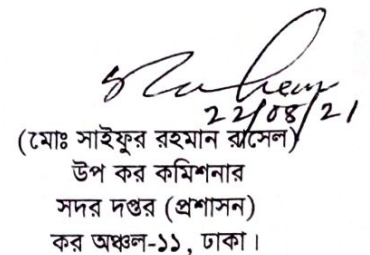 22/08/21
(মোঃ সাইফুর রহমান রাসেল)
উপ কর কমিশনার
সদর দপ্তর (প্রশাসন)
কর অঞ্চল-১১, ঢাকা।